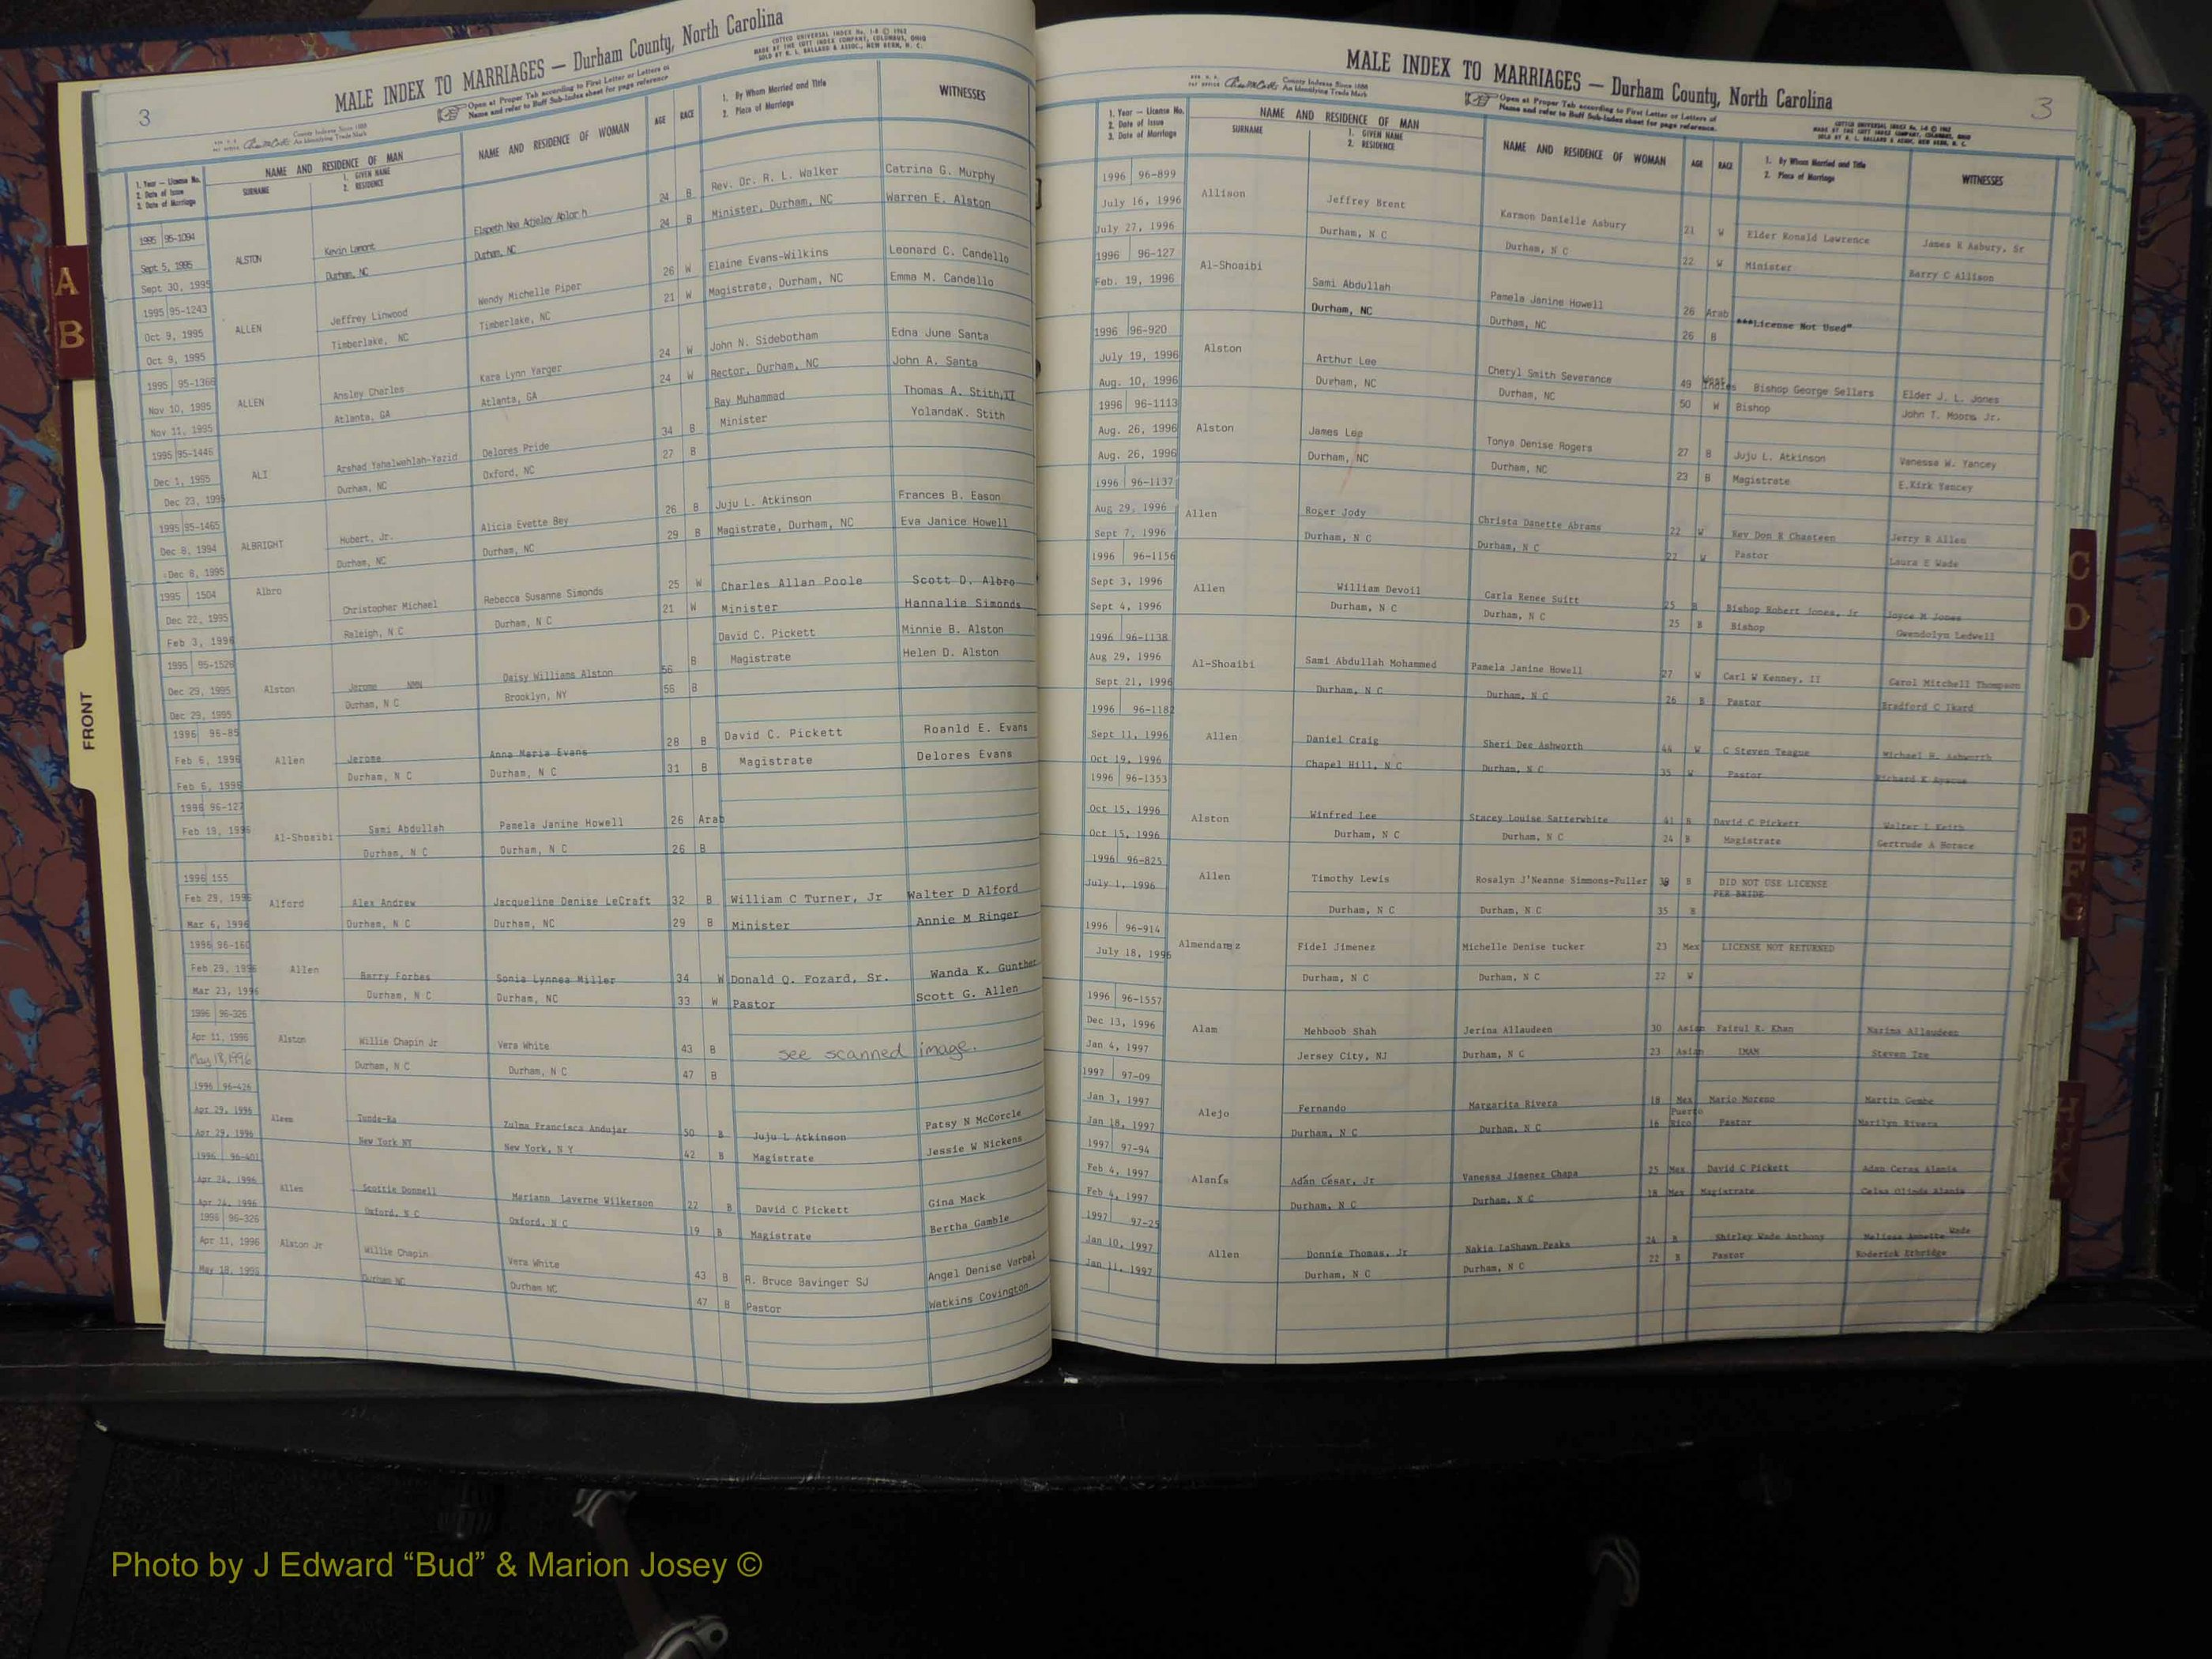 3
MALE INDEX TO MARRIAGES — Durham County, North Carolina
COTTCO UNIVERSAL INDEX No. 1-8 © 1962
MADE BY THE COTT INDEX COMPANY, COLUMBUS, OHIO
SOLD BY R. L. BALLARD & ASSOC., NEW BERN, N. C.
Open at Proper Tab according to First Letter or Letters of
Name and refer to Buff Sub-Index sheet for page reference
County Indexes Since 1888
An Identifying Trade Mark
1. Year — License No.
2. Date of Issue
3. Date of Marriage
NAME AND RESIDENCE OF MAN
SURNAME
1. GIVEN NAME
2. RESIDENCE
NAME AND RESIDENCE OF WOMAN
AGE
RACE
1. By Whom Married and Title
2. Place of Marriage
WITNESSES
1995 95-1094 24 B Rev. Dr. R. L. Walker Catrina G. Murphy
Sept 5, 1995 ALSTON Kevin Lamont 24 B Minister, Durham, NC Warren E. Alston
Sept 30, 1995 Durham, NC Durham, NC
1995 95-1243 Wendy Michelle Piper 26 W Elaine Evans-Wilkins Leonard C. Candello
Oct 9, 1995 ALLEN Jeffrey Linwood 21 W Magistrate, Durham, NC Emma M. Candello
Oct 9, 1995 Timberlake, NC Timberlake, NC
1995 95-1366 Kara Lynn Yarger 24 W John N. Sidebotham Edna June Santa
Nov 10, 1995 ALLEN Ansley Charles 24 W Rector, Durham, NC John A. Santa
Nov 11, 1995 Atlanta, GA Atlanta, GA
1995 95-1446 Delores Pride 34 B Ray Muhammad Thomas A. Stith, II
Dec 1, 1995 ALI Arshad Yahalwahlah-Yazid 27 B Minister YolandaK. Stith
Dec 23, 1995 Durham, NC Oxford, NC
1995 95-1465 Alicia Evette Bey 26 B Juju L. Atkinson Frances B. Eason
Dec 8, 1994 ALBRIGHT Hubert, Jr. 29 B Magistrate, Durham, NC Eva Janice Howell
Dec 8, 1995 Durham, NC Durham, NC
1995 1504 Albro Rebecca Susanne Simonds 25 W Charles Allan Poole Scott D. Albro
Dec 22, 1995 Christopher Michael 21 W Minister Hannalie Simonds
Feb 3, 1996 Raleigh, N C Durham, N C
1995 95-1526 Daisy Williams Alston 56 B David C. Pickett Minnie B. Alston
Dec 29, 1995 Alston Jerome NMN Brooklyn, NY 56 B Magistrate Helen D. Alston
Dec 29, 1995 Durham, N C
1996 96-85 Anna Maria Evans 28 B David C. Pickett Roanld E. Evans
Feb 6, 1996 Allen Jerome 31 B Magistrate Delores Evans
Feb 6, 1996 Durham, N C Durham, N C
1996 96-127
Feb 19, 1996 Al-Shoaibi Sami Abdullah Pamela Janine Howell 26 Arab
Durham, N C Durham, N C 26 B
1996 155
Feb 29, 1996 Alford Alex Andrew Jacqueline Denise LeCraft 32 B William C Turner, Jr Walter D Alford
Mar 6, 1996 Durham, N C Durham, NC 29 B Minister Annie M Ringer
1996 96-160
Feb 29, 1996 Allen Barry Forbes Sonia Lynnea Miller 34 W Donald Q. Fozard, Sr. Wanda K. Gunther
Mar 23, 1996 Durham, N C Durham, NC 33 W Pastor Scott G. Allen
1996 96-326
Apr 11, 1996 Alston Willie Chapin Jr Vera White 43 B see scanned image.
May 18, 1996 Durham, N C Durham, N C 47 B
1996 96-426
Apr 29, 1996 Aleem Tunde-Ra Zulma Francisca Andujar 50 B Juju L Atkinson Patsy N McCorcle
Apr 29, 1996 New York NY New York, N Y 42 B Magistrate Jessie W Nickens
1996 96-401
Apr 24, 1996 Allen Scottie Donnell Mariann Laverne Wilkerson 22 B David C Pickett Gina Mack
Apr 24, 1996 Oxford, N C Oxford, N C 19 B Magistrate Bertha Gamble
1996 96-326
Apr 11, 1996 Alston Jr Willie Chapin Vera White 43 B R. Bruce Bavinger SJ Angel Denise Verbal
May 18, 1996 Durham NC Durham NC 47 B Pastor Watkins Covington
FRONT
A
B
MALE INDEX TO MARRIAGES — Durham County, North Carolina
3
County Indexes Since 1888
An Identifying Trade Mark
Open at Proper Tab according to First Letter or Letters of
Name and refer to Buff Sub-Index sheet for page reference.
COTTCO UNIVERSAL INDEX No. 1-8 © 1962
MADE BY THE COTT INDEX COMPANY, COLUMBUS, OHIO
SOLD BY R. L. BALLARD & ASSOC., NEW BERN, N. C.
1. Year — License No.
2. Date of Issue
3. Date of Marriage
NAME AND RESIDENCE OF MAN
SURNAME
1. GIVEN NAME
2. RESIDENCE
NAME AND RESIDENCE OF WOMAN
AGE
RACE
1. By Whom Married and Title
2. Place of Marriage
WITNESSES
1996 96-899
July 16, 1996 Allison Jeffrey Brent Karmon Danielle Asbury 21 W Elder Ronald Lawrence James R Asbury, Sr
July 27, 1996 Durham, N C Durham, N C 22 W Minister Barry C Allison
1996 96-127
Feb. 19, 1996 Al-Shoaibi Sami Abdullah Pamela Janine Howell 26 Arab ***License Not Used"
Durham, NC Durham, NC 26 B
1996 96-920
July 19, 1996 Alston Arthur Lee Cheryl Smith Severance 49 West Indies Bishop George Sellers Elder J. L. Jones
Aug. 10, 1996 Durham, NC Durham, NC 50 W Bishop John T. Moore Jr.
1996 96-1113
Aug. 26, 1996 Alston James Lee Tonya Denise Rogers 27 B Juju L. Atkinson Vanessa W. Yancey
Aug. 26, 1996 Durham, NC Durham, NC 23 B Magistrate E.Kirk Yancey
1996 96-1137
Aug 29, 1996 Allen Roger Jody Christa Danette Abrams 22 W Rev Don R Chasteen Jerry R Allen
Sept 7, 1996 Durham, N C Durham, N C 22 W Pastor Laura E Wade
1996 96-1156
Sept 3, 1996 Allen William Devoil Carla Renee Suitt 25 B Bishop Robert Jones, Jr Joyce M Jones
Sept 4, 1996 Durham, N C Durham, N C 25 B Bishop Gwendolyn Ledwell
1996 96-1138
Aug 29, 1996 Al-Shoaibi Sami Abdullah Mohammed Pamela Janine Howell 27 W Carl W Kenney, II Carol Mitchell Thompson
Sept 21, 1996 Durham, N C Durham, N C 26 B Pastor Bradford C Ikard
1996 96-1182
Sept 11, 1996 Allen Daniel Craig Sheri Dee Ashworth 44 W C Steven Teague Michael H. Ashworth
Oct 19, 1996 Chapel Hill, N C Durham, N C 35 W Pastor Richard K Ayscue
1996 96-1353
Oct 15, 1996 Alston Winfred Lee Stacey Louise Satterwhite 41 B David C Pickett Walter L Keith
Oct 15, 1996 Durham, N C Durham, N C 24 B Magistrate Gertrude A Horace
1996 96-825
July 1, 1996 Allen Timothy Lewis Rosalyn J'Neanne Simmons-Fuller B DID NOT USE LICENSE
PER BRIDE
Durham, N C Durham, N C 35 B
1996 96-914
July 18, 1996 Almendarez Fidel Jimenez Michelle Denise tucker 23 Mex LICENSE NOT RETURNED
Durham, N C Durham, N C 22 W
1996 96-1557
Dec 13, 1996 Alam Mehboob Shah Jerina Allaudeen 30 Asian Faizul R. Khan Nazima Allaudeen
Jan 4, 1997 Jersey City, NJ Durham, N C 23 Asian IMAM Steven Tze
1997 97-09
Jan 3, 1997 Alejo Fernando Margarita Rivera 18 Mex Mario Moreno Martin Gembe
Jan 18, 1997 Durham, N C Durham, N C 16 Puerto Rico Pastor Marilyn Rivera
1997 97-94
Feb 4, 1997 Alanís Adán César, Jr Vanessa Jimenez Chapa 25 Mex David C Pickett Adan Cerna Alanis
Feb 4, 1997 Durham, N C Durham, N C 18 Mex Magistrate Celsa Olinda Alanis
1997 97-25
Jan 10, 1997 Allen Donnie Thomas, Jr Nakia LaShawn Peaks 24 B Shirley Wade Anthony Melissa Annette Wade
Jan 11, 1997 Durham, N C Durham, N C 22 B Pastor Roderick Ethridge
C
D
Photo by J Edward “Bud” & Marion Josey ©